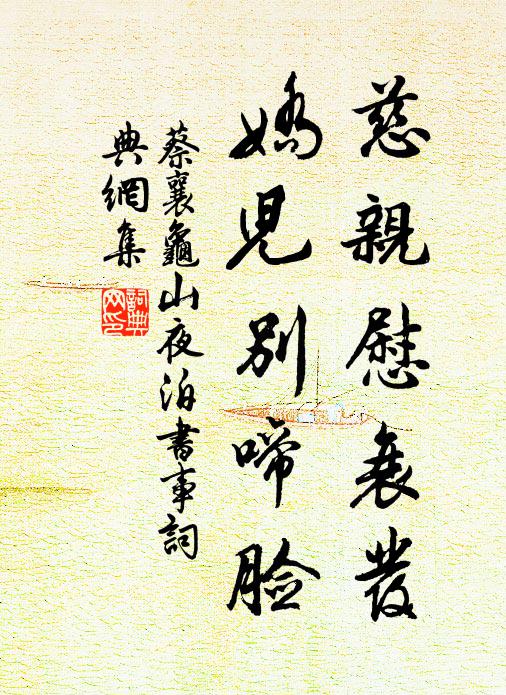 慈親慰衰髮
嬌児別啼臉
蔡襄龜山夜泊書事詞
典網集
詞典網印